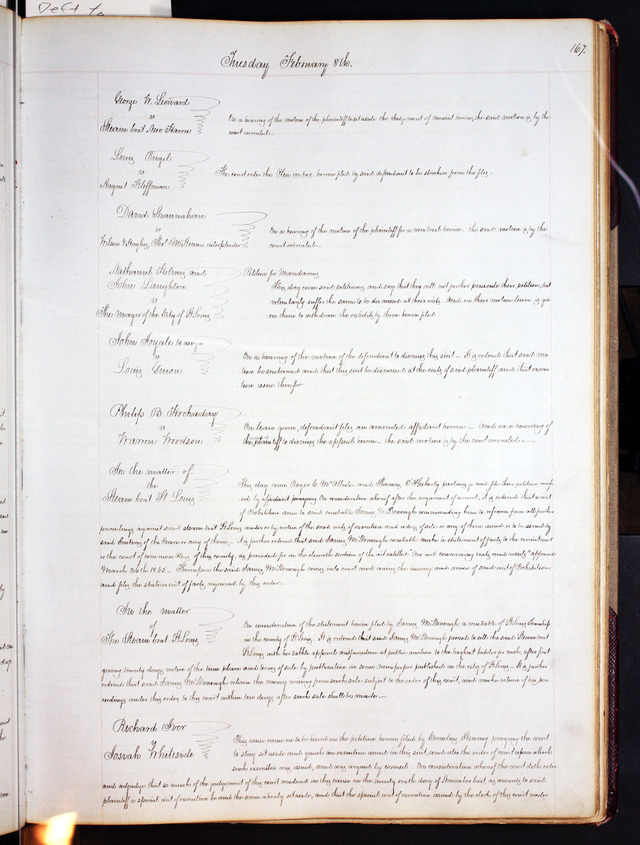 167.
Tuesday February 8th.
George W. Leonard
vs
Steam boat New Haven
On a hearing of the motion of the plaintiff to set aside the judgment of nonsuit herein, the said motion is by the
court overruled.
Louis Angel
vs
August Kloffman
The court orders the Plea herein filed by said defendant to be stricken from the files.
David Shannahan
vs
On a hearing of the motion of the plaintiff for a new trial herein. the said motion is by the
court overruled.
Nathaniel Holmes and
John
vs
The mayor of the City of St. Louis
Petition for Mandamus
This day come said petitioners and say that they will not further prosecute their petition, but
voluntarily suffer the same to be dismissed at their costs. And on their motion leave is giv
en them to withdraw the exhibits by them herein filed.
John
vs
Louis
On a hearing of the motion of the defendant to dismiss this suit. It is ordered that said mo
tion be sustained and that this suit be dismissed at the costs of said plaintiff and that execu
tion issue therefor
Philip B. Hockaday
vs
Warren Woodson
On leave given, defendant files an amended affidavit herein. And on a hearing of
the plaintiff to dismiss the appeal herein. the said motion is by the court overruled.
In the matter of
the
Steam boat St. Louis
This day come Roger L. McAllister and partners and file their petition verifi
ed by affidavit praying
of Prohibition issue to said constable James McDonough commanding him to refrain from all further
proceedings against said steam boat St. Louis under or by virtue of the said writs of execution and orders of sale or any of them issued or to be issued by
said
to the court of common pleas of this county, as provided for in the eleventh section of the act entitled "An act concerning boats and vessels" approved
March 24th 1845. Thereupon the said James McDonough comes into court and waives the issuing and service of said writ of Prohibition
and files the statement of facts required by this order.
In the matter
of
The Steam boat St. Louis
On consideration of the statement herein filed by James McDonough a constable of St. Louis Township
in the county of St. Louis. It is ordered that said James McDonough proceed to sell the said Steam boat
St. Louis with her tackle apparel and furniture at public auction to the highest bidder for cash, after first
giving twenty days notice of the time place and terms of sale by publication in some newspaper published in the city of St. Louis. It is further
ordered that said James McDonough retain the money arising from such sale subject to the order of this court, and make return of his pro
ceedings under this order to this court within ten days after such sale shall be made.
Richard Ivor
vs
Josiah Whiteside
This cause comes on to be heard on the petition herein filed by Cornelius Fleming praying the court
to stay set aside and quash an execution issued in this suit, and also the order of court upon which
such execution was issued, and was argued by counsel. On consideration whereof the court doth order
and adjudge that so much of the judgment of this court rendered in this cause on the twenty sixth day of November last, as awards to said
plaintiff a special writ of execution be and the same is hereby set aside, and that the special writ of execution issued by the clerk of this court under